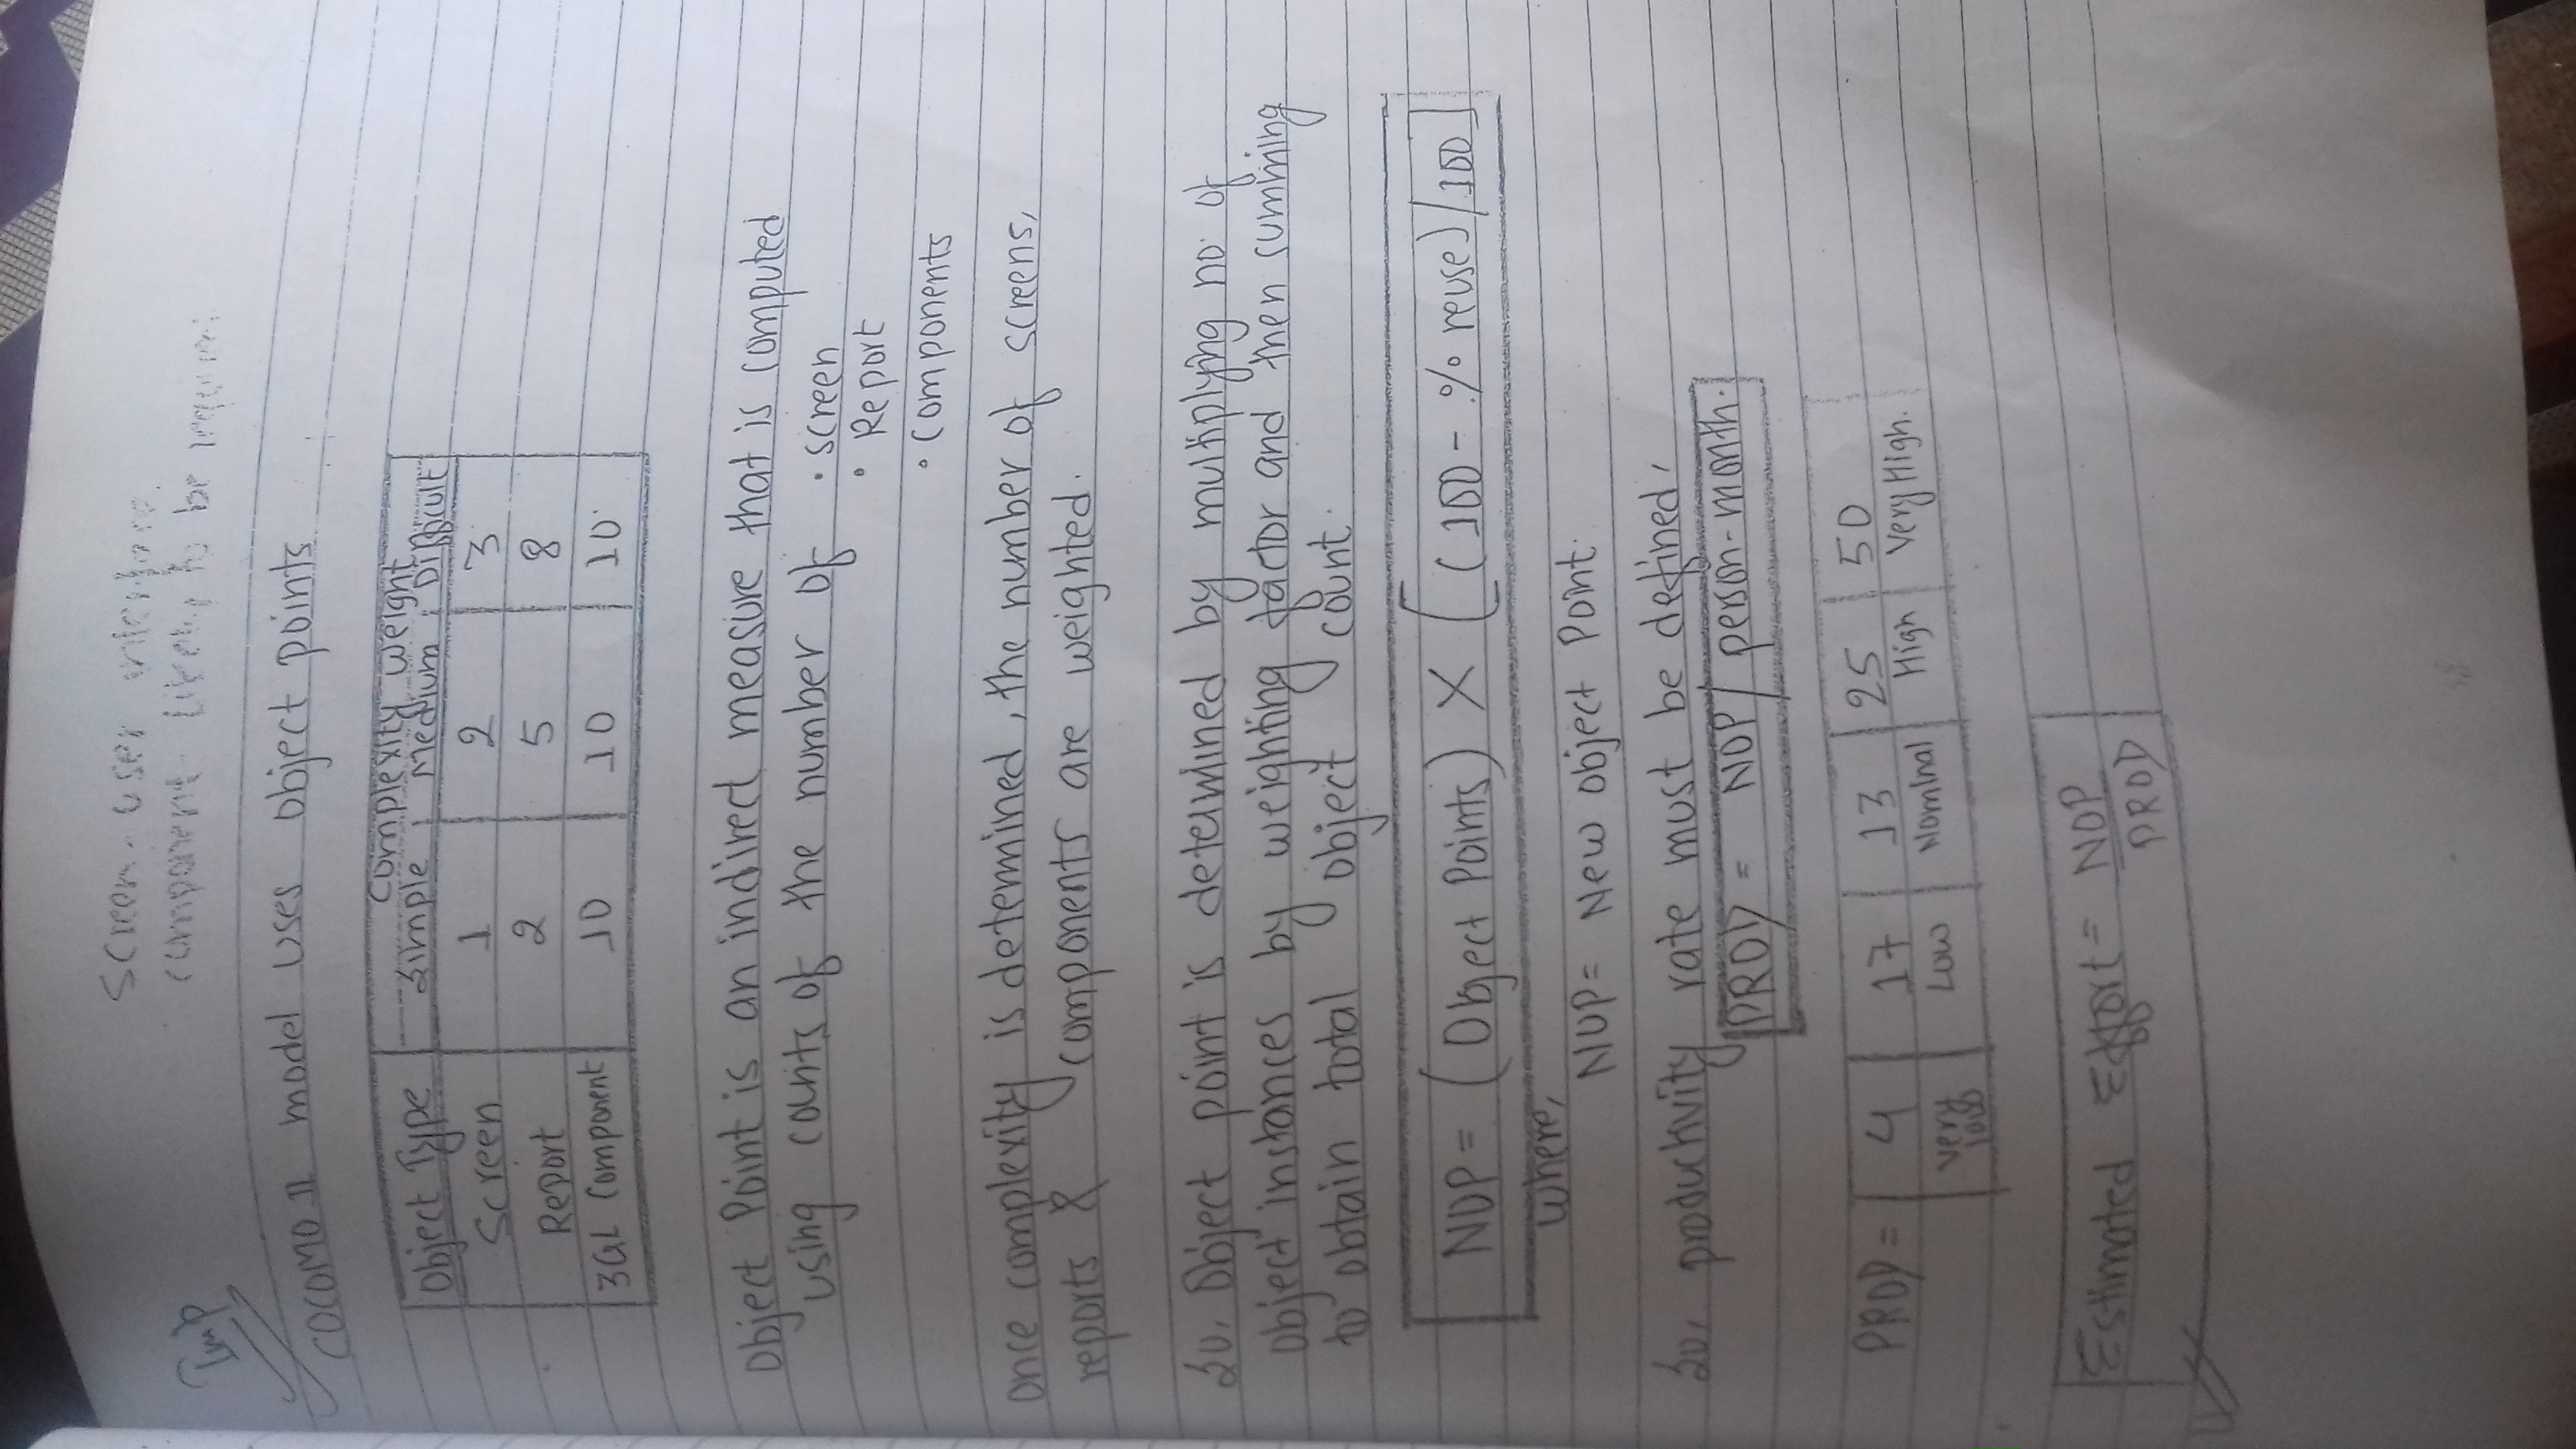 Screen - user interface.
component - Likely to be
Imp
COCOMO II model uses object points
Object Type
Complexity weight
Simple Medium Difficult
Screen 1 2 3
Report 2 5 8
3GL Component 10 10 10
Object Point is an indirect measure that is computed
using counts of the number of • screen
• Report
• Components
Once complexity is determined, the number of screens,
reports & components are weighted.
So, Object point is determined by multiplying no. of
object instances by weighting factor and then summing
to obtain total object count.
NOP = (Object Points) X [(100 - % reuse)/100]
where,
NOP = New object Point.
So, productivity rate must be defined,
PROD = NOP / person-month.
PROD = 4 17 13 25 50
very low Low Nominal High Very High.
Estimated Effort = NOP
PROD